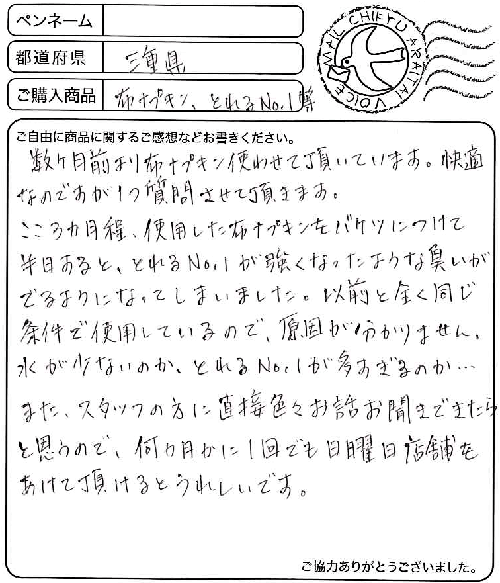 ペンネーム
都道府県 三重県
ご購入商品 布ナプキン、とれるNo.1等
MAIL CHIEYU ARAITAI VOICE
ご自由に商品に関するご感想などお書きください。
数ヶ月前より布ナプキン使わせて頂いています。快適
なのですが1つ質問させて頂きます。
ここ3カ月程、使用した布ナプキンをバケツにつけて
半日あると、とれるNo.1が強くなったような臭いが
でるようになってしまいました。以前と全く同じ
条件で使用しているので、原因が分かりません。
水が少ないのか、とれるNo.1が多すぎるのか…
また、スタッフの方に直接色々お話お聞きできたら
と思うので、何カ月かに1回でも日曜日店舗を
あけて頂けるとうれしいです。
ご協力ありがとうございました。